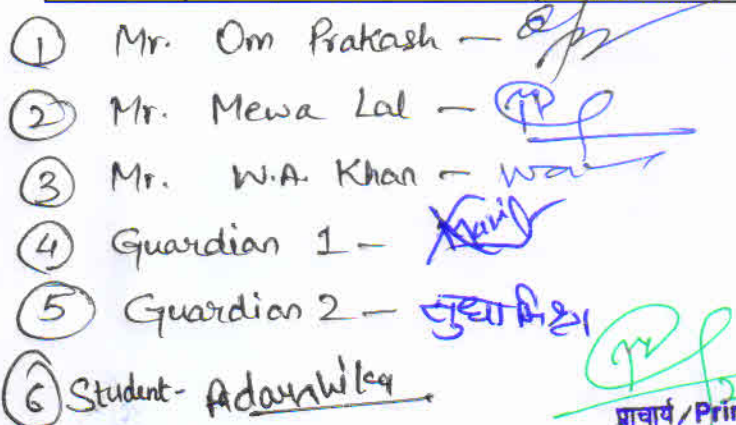 ① Mr. Om Prakash -
② Mr. Mewa Lal -
③ Mr. W.A. Khan -
④ Guardian 1 -
⑤ Guardian 2 - सुधा मिश्रा
⑥ Student-
प्राचार्य/Prin